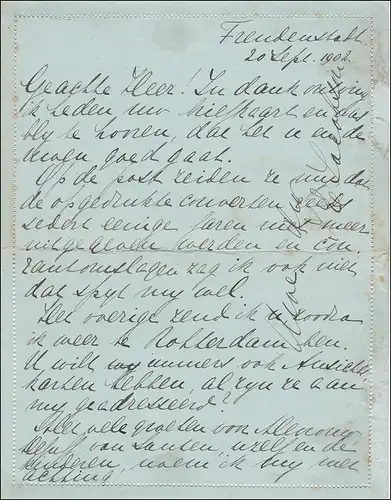 Freudenstadt
20 Sept. 1902.
Geachte Heer! In dank ontving
ik heden uw briefkaart en was
bly te hooren, dat het u en de
goed gaat.
Op de post zeiden ze my dat
de opgedrukte couverten reeds
sedert eenige jaren niet meer
uitgegeven werden en
zag ik ook niet
dat spyt my wel.
Het overige zend ik u zoodra
ik weer te Rotterdam ben.
U wilt my immers ook Ansichts
karten hebben, al zyn ze aan
my geadresseerd?
Met vele groeten voor Mevrouw
van Santen, uzelf en de
kinderen, noem ik my met
achting